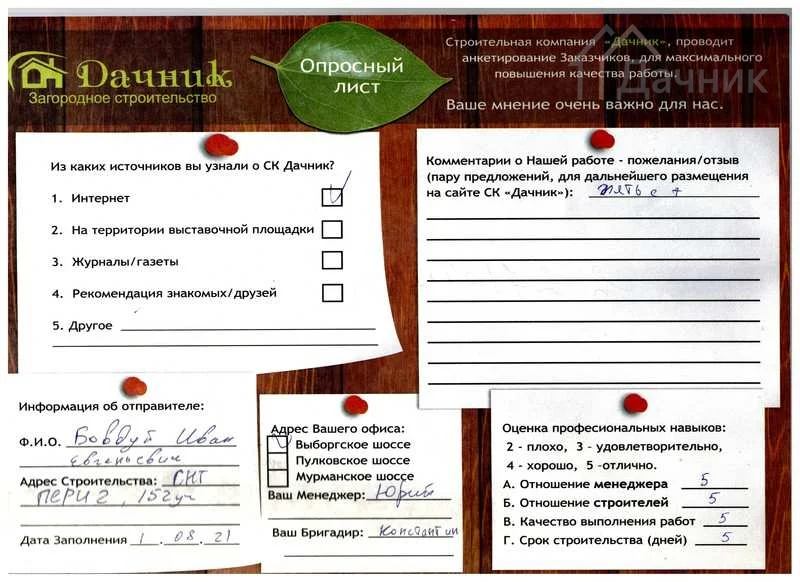 Дачник
Загородное строительство
Опросный
лист
Строительная компания «Дачник», проводит
анкетирование Заказчиков, для максимального
повышения качества работы.
Ваше мнение очень важно для нас.
Дачник
Из каких источников вы узнали о СК Дачник?
1. Интернет
2. На территории выставочной площадки
3. Журналы/газеты
4. Рекомендация знакомых/друзей
5. Другое
Комментарии о Нашей работе - пожелания/отзыв
(пару предложений, для дальнейшего размещения
на сайте СК «Дачник»): пять с +
Информация об отправителе:
Ф.И.О. Иван
Евгеньевич
Адрес Строительства: СНТ
ПЕРИ 2, 152 уч
Дата Заполнения 1 . 08 . 21
Адрес Вашего офиса:
Выборгское шоссе
Пулковское шоссе
Мурманское шоссе
Ваш Менеджер: Юрий
Ваш Бригадир: Константин
Оценка профессиональных навыков:
2 - плохо, 3 - удовлетворительно,
4 - хорошо, 5 -отлично.
А. Отношение менеджера 5
Б. Отношение строителей 5
В. Качество выполнения работ 5
Г. Срок строительства (дней) 5